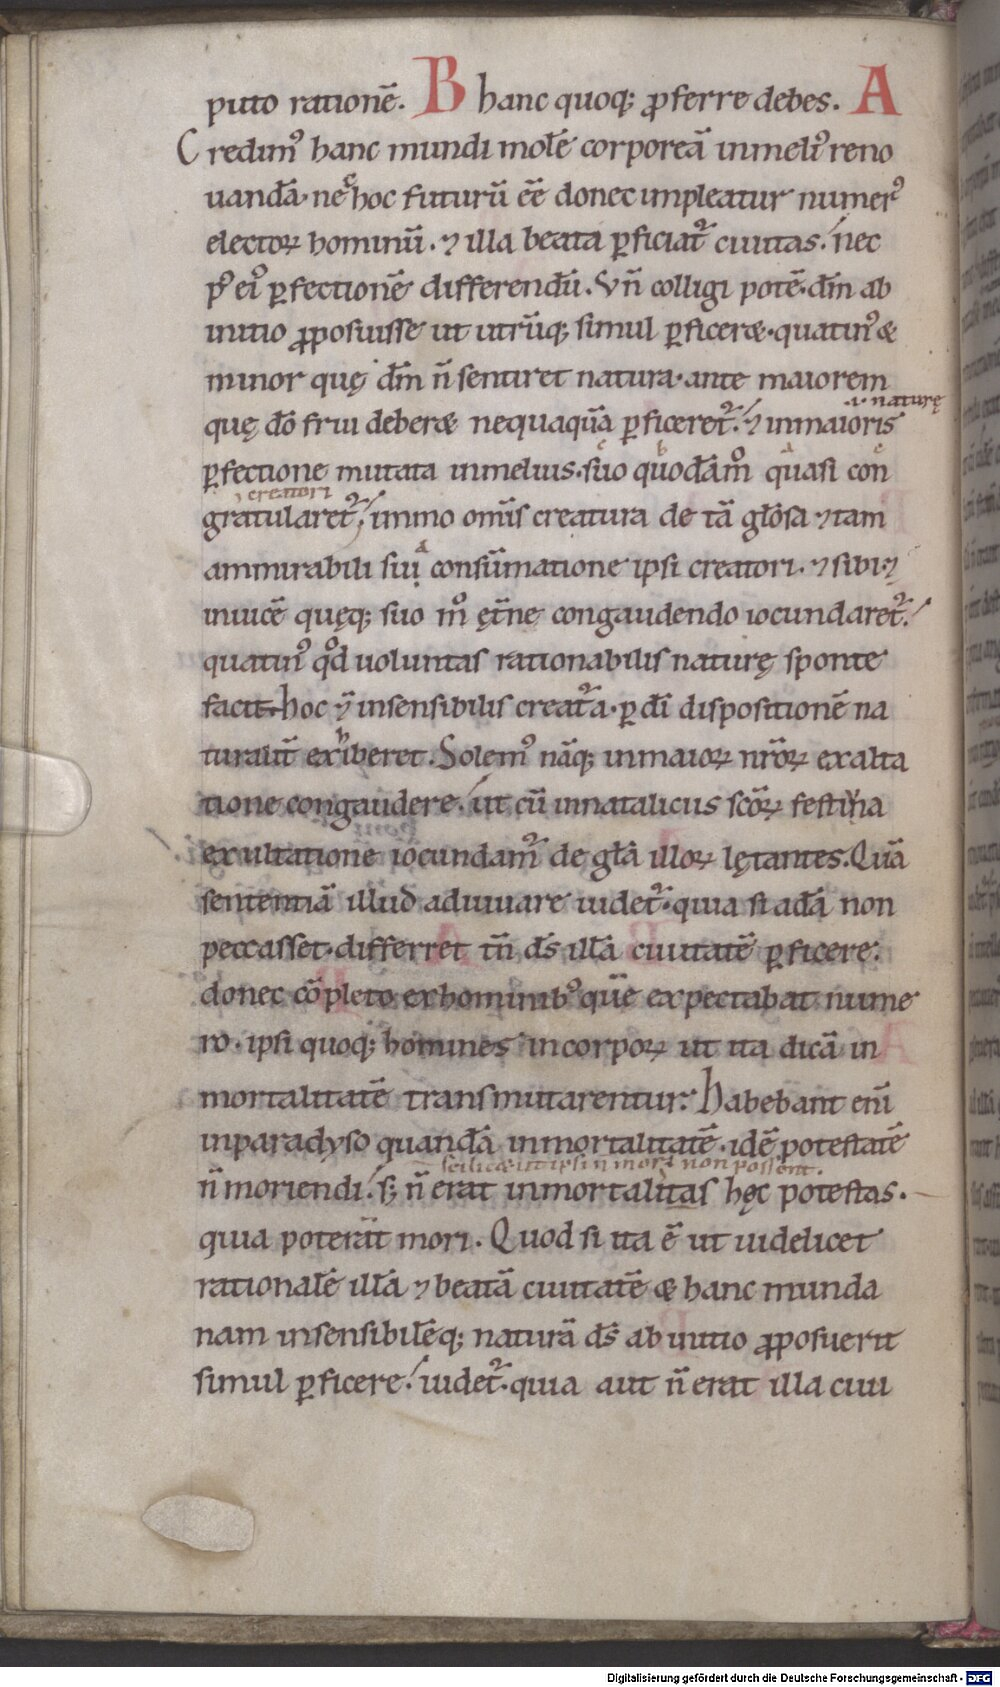 puto rationē. B hanc quoq; ꝓferre debes. A
Credimꝰ hanc mundi molē corporeā inmeliꝰ reno
uandā· nec hoc futurū eē donec impleatur numerꝰ
electoꝝ hominū. ⁊ illa beata ꝑficiat᷑ ciuitas. nec
pꝰ eiꝰ ꝑfectionē differendū. Vn̄ colligi potē· dm̄ ab
initio ꝓposuisse ut utrūq; simul ꝑficeræ· quatinꝰ &
minor quę dm̄ n̄ sentiret natura· ante maiorem
.i. naturę
quę dō frui deberæ nequaquā ꝑficeret᷑. ⁊ inmaioris
ꝑfectione mutata inmelius· suo quodāmͦ quasi con
creatori
gratularet᷑. immo omīs creatura de tā glōsa ⁊ tam
ammirabili sui consūmatione ipsi creatori. ⁊ sibi· ⁊
inuicē quęq; suo mͦ ęt̄ne congaudendo iocundaret᷑.
quatinꝰ qͦd uoluntas rationabilis naturę sponte
facit· hoc ⁊ insensibilis creat᷑a· ꝑ dī dispositionē na
turalit̄ exhiberet. Solemꝰ nāq; inmaioꝝ nr̄oꝝ exalta
tione congaudere. ut cū innatalicus scōꝝ festiua
exultatione iocundam᷑ de glā illoꝝ lętantes. Quā
sententiā illud adiuuare uidet᷑. quia si adā non
peccasset· differret tn̄ ds̄ illā ciuitatē ꝑficere.
donec cōpleto exhominibꝰ quē expectabat nume
ro· ipsi quoq; homines incorpoꝝ ut ita dicā in
mortalitatē transmutarentur. Habebant enī
inparadyso quandā inmortalitatē· idē potestatē
scilicæ ut ipsi n mori non possent.
n̄ moriendi. s; n̄ erat inmortalitas hęc potestas.
quia poterāt mori. Quod si ita ē ut uidelicet
rationalē illā ⁊ beatā ciuitatē & hanc munda
nam insensibilēq; naturā ds̄ ab initio ꝓposuerit
simul ꝑficere. uidet᷑· quia aut n̄ erat illa ciui
Digitalisierung gefördert durch die Deutsche Forschungsgemeinschaft - DFG